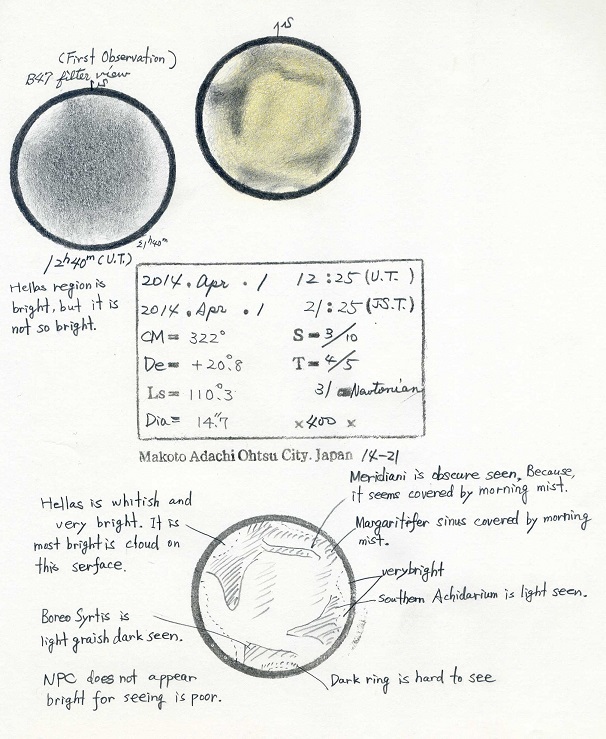 S
(First Observation)
B47 filter view
S
12h40m (U.T.)
21h40m
Hellas region is
bright, but it is
not so bright.
2014. Apr. 1 12:25 (U.T.)
2014. Apr. 1 21:25 (JS.T.)
CM= 322° S=3/10
De= +20°.8 T=4/5
Ls= 110°.3 31 Newtonian
Dia= 14".7 ×400 ×
Makoto Adachi Ohtsu City. Japan 14-21
Meridiani is obscure seen. Because,
it seems covered by morning mist.
Hellas is whitish and
very bright. It is
most bright is cloud on
this serface.
Margaritifer sinus covered by morning
mist.
very bright
Southern Achidarium is light seen.
Boreo Syrtis is
light graish dark seen.
NPC does not appear
bright for seeing is poor.
Dark ring is hard to see